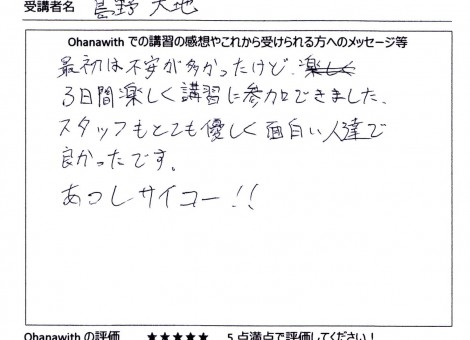 受講者名 島野大地
Ohanawith での講習の感想やこれから受けられる方へのメッセージ等
最初は不安が多かったけど、楽しく
3日間楽しく講習に参加できました。
スタッフもとても優しく面白い人達で
良かったです。
あつしサイコー!!
Ohanawith の評価 ★★★★★ 5 点満点で評価してください!